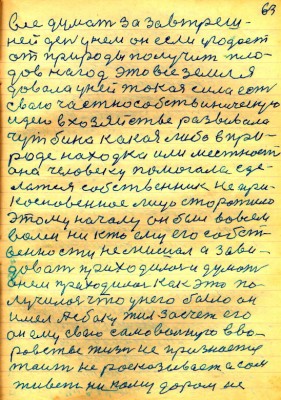 63
все думат за завтреш-
ней ден у нем он если угодает
от природы получит пло-
дов на год это все земля
довала у ней такая сила вот
сваго частнособствиническую
идею в хозяйстве развивала
чут бина какая либо в при-
роде находка или местност
ана человеку помогала сде-
латся собственник не при-
косновенное лицо сторотило
этому началу он был во всем
воли ни кто ему его собст-
венности не мишал а зави-
доват приходилос и думат
в нем приходилос как это по-
лучилос что у него было он
имел а собаку жил за счет его
он ему сваю самовольную в во-
ровстве жизн не признается
таит не росказывает а сам
живет ни кому даром не